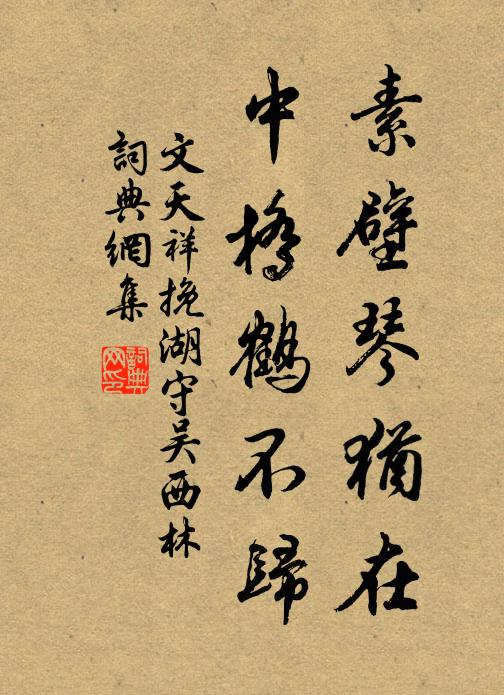 素壁琴猶在
中橋鶴不歸
文天祥挽湖守吳西林
詞典網集
詞典网印